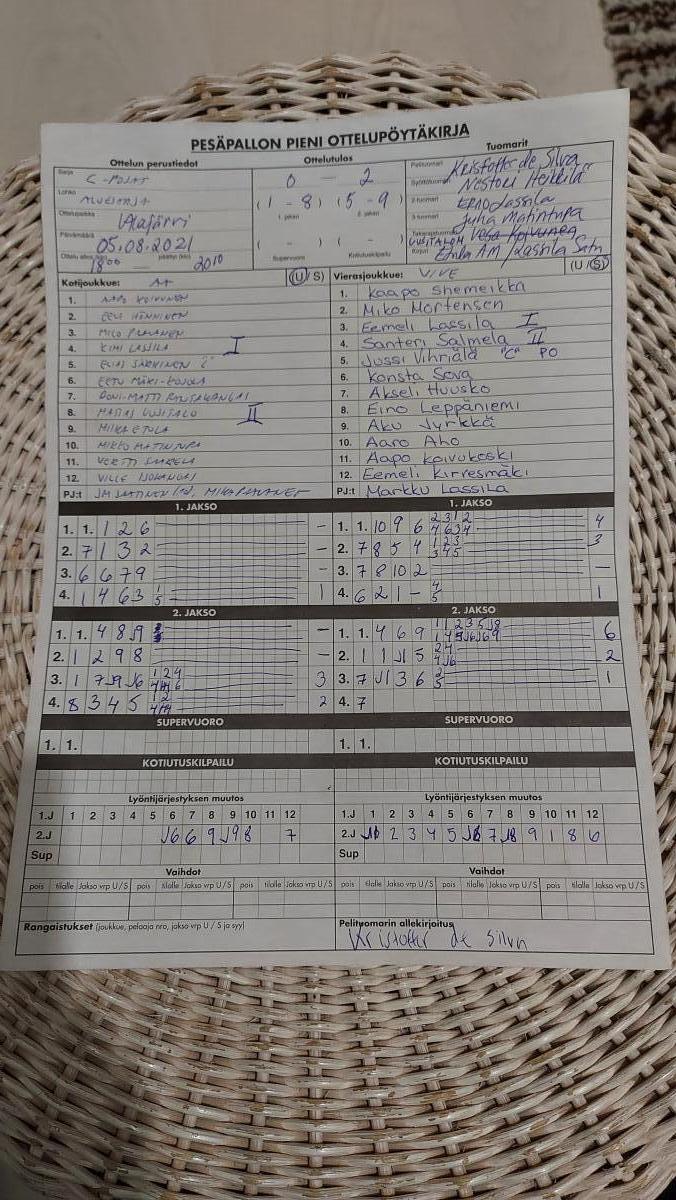 PESÄPALLON PIENI OTTELUPÖYTÄKIRJA
Ottelun perustiedot
Ottelutulos
Tuomarit
Sarja
C-POJAT
0 — 2
Pelituomari
Kristoffer de Silva
Lohko
(1 - 8) (5 - 9)
Syöttötuomari
Nestori Heikkilä
Ottelupaikka
Alajärvi
1. jakso
2. jakso
2-tuomari
Erno Lassila
3-tuomari
Juha Matintupa
Päivämäärä
05.08.2021
( - ) ( - )
Takarajatuomari
Vesa Koivunen
18⁰⁰ — 20¹⁰
Supervuoro
Kotiutuskilpailu
Kirjuri
Kotijoukkue: AA
(U/S)
Vierasjoukkue: VIVE
(U/S)
1. AAPO KOIVUNEN
1. Kaapo Shemeikka
2. EELI HÄNNINEN
2. Miko Mortensen
3. MICO PAAANEN
3. Eemeli Lassila I
4. KIMI LASSILA I
4. Santeri Salmela II
5. ELIAS SARVINEN
5. Jussi Vihriälä "C" PO
6. EETU MÄKI-KOJOLA
6. Konsta Sova
7. RONI-MATTI RAUTAKANGAS
7. Akseli Huusko
8. MATIAS UUSITALO II
8. Eino Leppäniemi
9. MIIKA ETULA
9. Aku Jyrkkä
10. MIKKO MATINTUPA
10. Aaro Aho
11. VERTTI
11. Aapo Koivukoski
12. VILLE ISOKANGAS
12. Eemeli Kirresmäki
PJ:t
PJ:t Markku Lassila
1. JAKSO
1. JAKSO
1. 1. 1 2 6 —
1. 1. 10 9 6 2 3 1 2 4 6 3 4 4
2. 7 1 3 2 —
2. 7 8 5 4 1 2 3 3 4 5 3
3. 6 6 7 9 —
3. 7 8 10 2 —
4. 1 4 6 3 1 5 1
4. 6 2 1 - 4 5 1
2. JAKSO
2. JAKSO
1. 1. 4 8 J9 —
1. 1. 4 6 9 6
2. 1 2 9 8 —
2. 1 1 J1 5 2 4 4 J6 2
3. 1 7 J9 J6 1 2 4 3
3. 7 J1 3 6 2 5 1
4. 8 3 4 5 1 2 2
4. 7
SUPERVUORO
SUPERVUORO
1. 1.
1. 1.
KOTIUTUSKILPAILU
KOTIUTUSKILPAILU
Lyöntijärjestyksen muutos
Lyöntijärjestyksen muutos
1.J 1 2 3 4 5 6 7 8 9 10 11 12
1.J 1 2 3 4 5 6 7 8 9 10 11 12
2.J J6 6 9 J9 8 7
2.J 2 3 4 5 7 J8 9 1 8 6
Sup
Sup
Vaihdot
Vaihdot
pois tilalle Jakso vrp U/S pois tilalle Jakso vrp U/S pois tilalle Jakso vrp U/S
pois tilalle Jakso vrp U/S pois tilalle Jakso vrp U/S pois tilalle Jakso vrp U/S
Rangaistukset (joukkue, pelaaja nro, jakso vrp U / S ja syy)
Pelituomarin allekirjoitus
Kristoffer de Silva